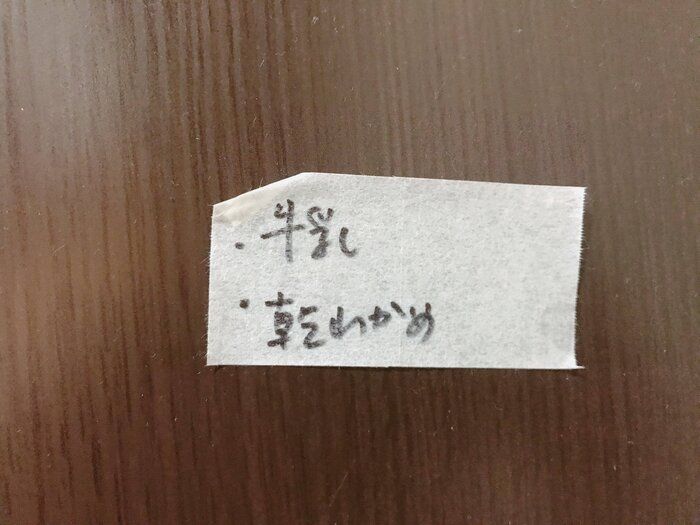 ・牛乳
・乾わかめ